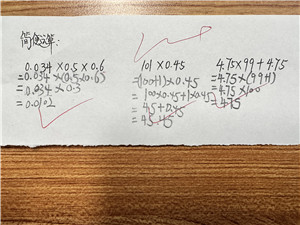 简便运算:
0.034×0.5×0.6
=0.034×(0.5×0.6)
=0.034×0.3
=0.0102
101×0.45
=(100+1)×0.45
=100×0.45+1×0.45
=45+0.45
=45.45
4.75×99+4.75
=4.75×(99+1)
=4.75×100
=475